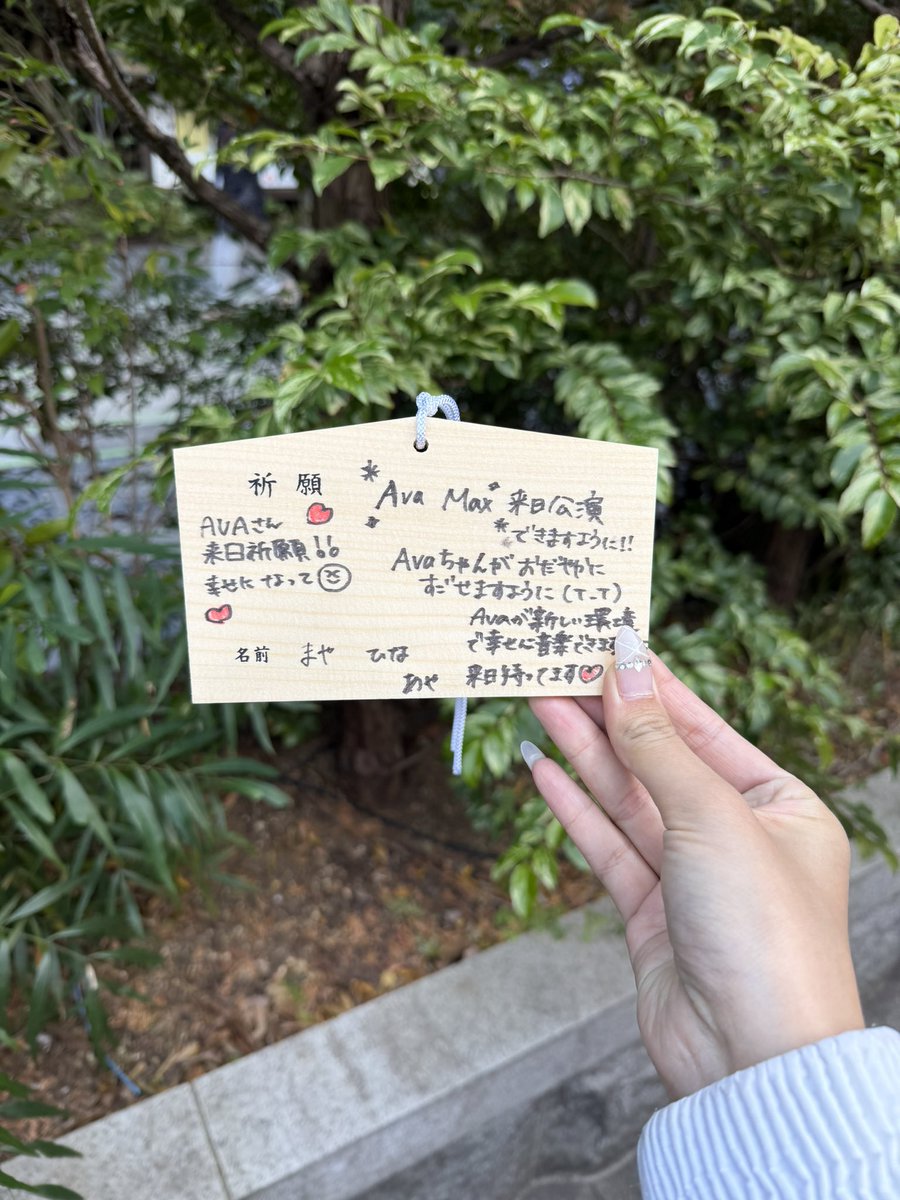 祈願
AVAさん
来日祈願!!
幸せになって
Ava Max 来日公演
できますように!!
Avaちゃんがおだやかに
すごせますように(T_T)
Avaが新しい環境
で幸せに音楽できます
来日待ってます
名前 まや ひな
あや